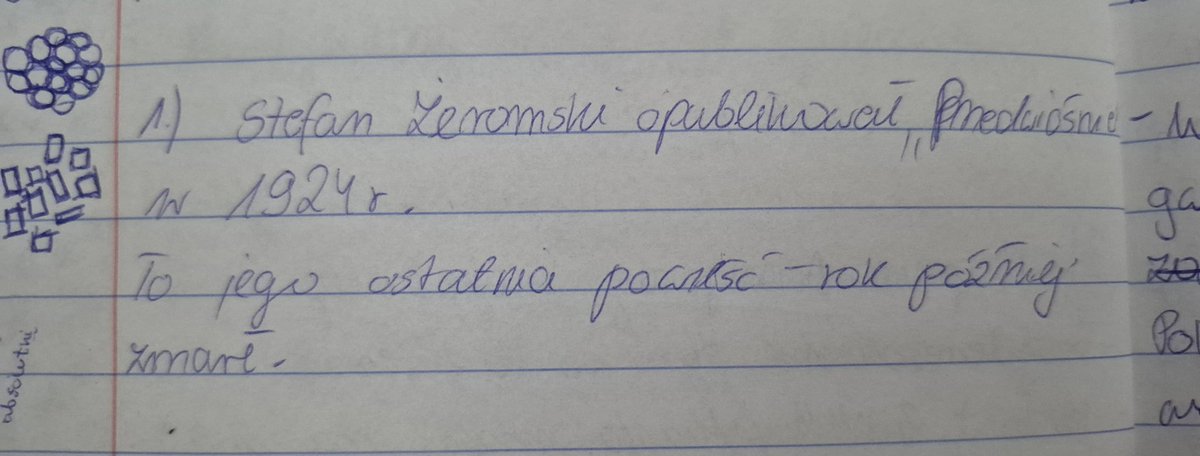 1.) Stefan Żeromski opublikował „Przedwiośnie
w 1924 r.
To jego ostatnia powieść – rok później
zmarł.
absolutni